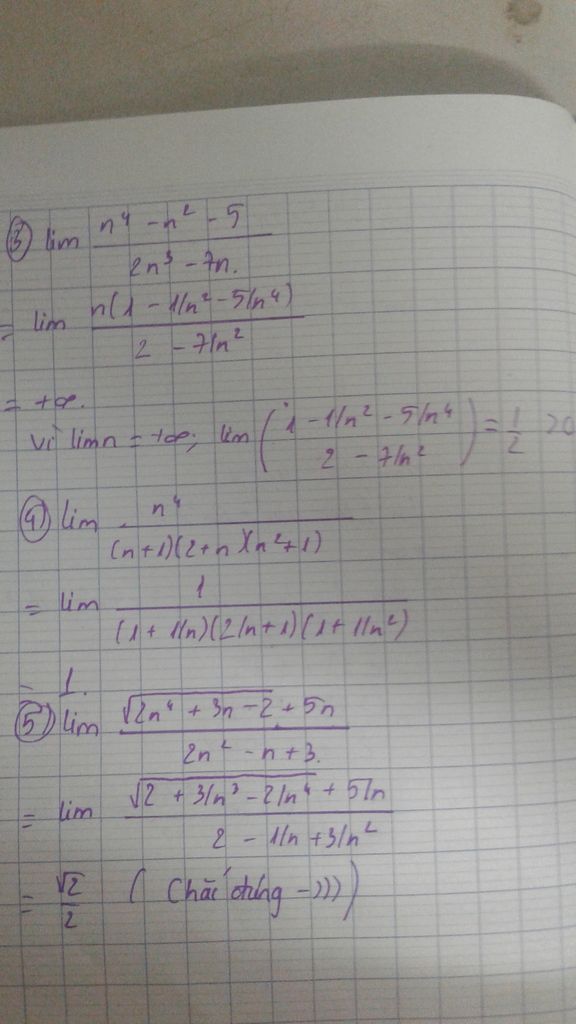 ③ lim (n⁴ - n² - 5)/(2n³ - 7n.)
= lim (n(1 - 1/n² - 5/n⁴))/(2 - 7/n²)
= +∞.
vì lim n = +∞; lim ((1 - 1/n² - 5/n⁴)/(2 - 7/n²)) = 1/2 >0
④ lim n⁴/((n+1)(2+n)(n²+1))
= lim 1/((1 + 1/n)(2/n + 1)(1 + 1/n²))
= 1.
⑤ lim (√(2n⁴ + 3n - 2) + 5n)/(2n² - n + 3.)
= lim (√(2 + 3/n³ - 2/n⁴) + 5/n)/(2 - 1/n + 3/n²)
= √2/2 ( Chắc đúng -)))))